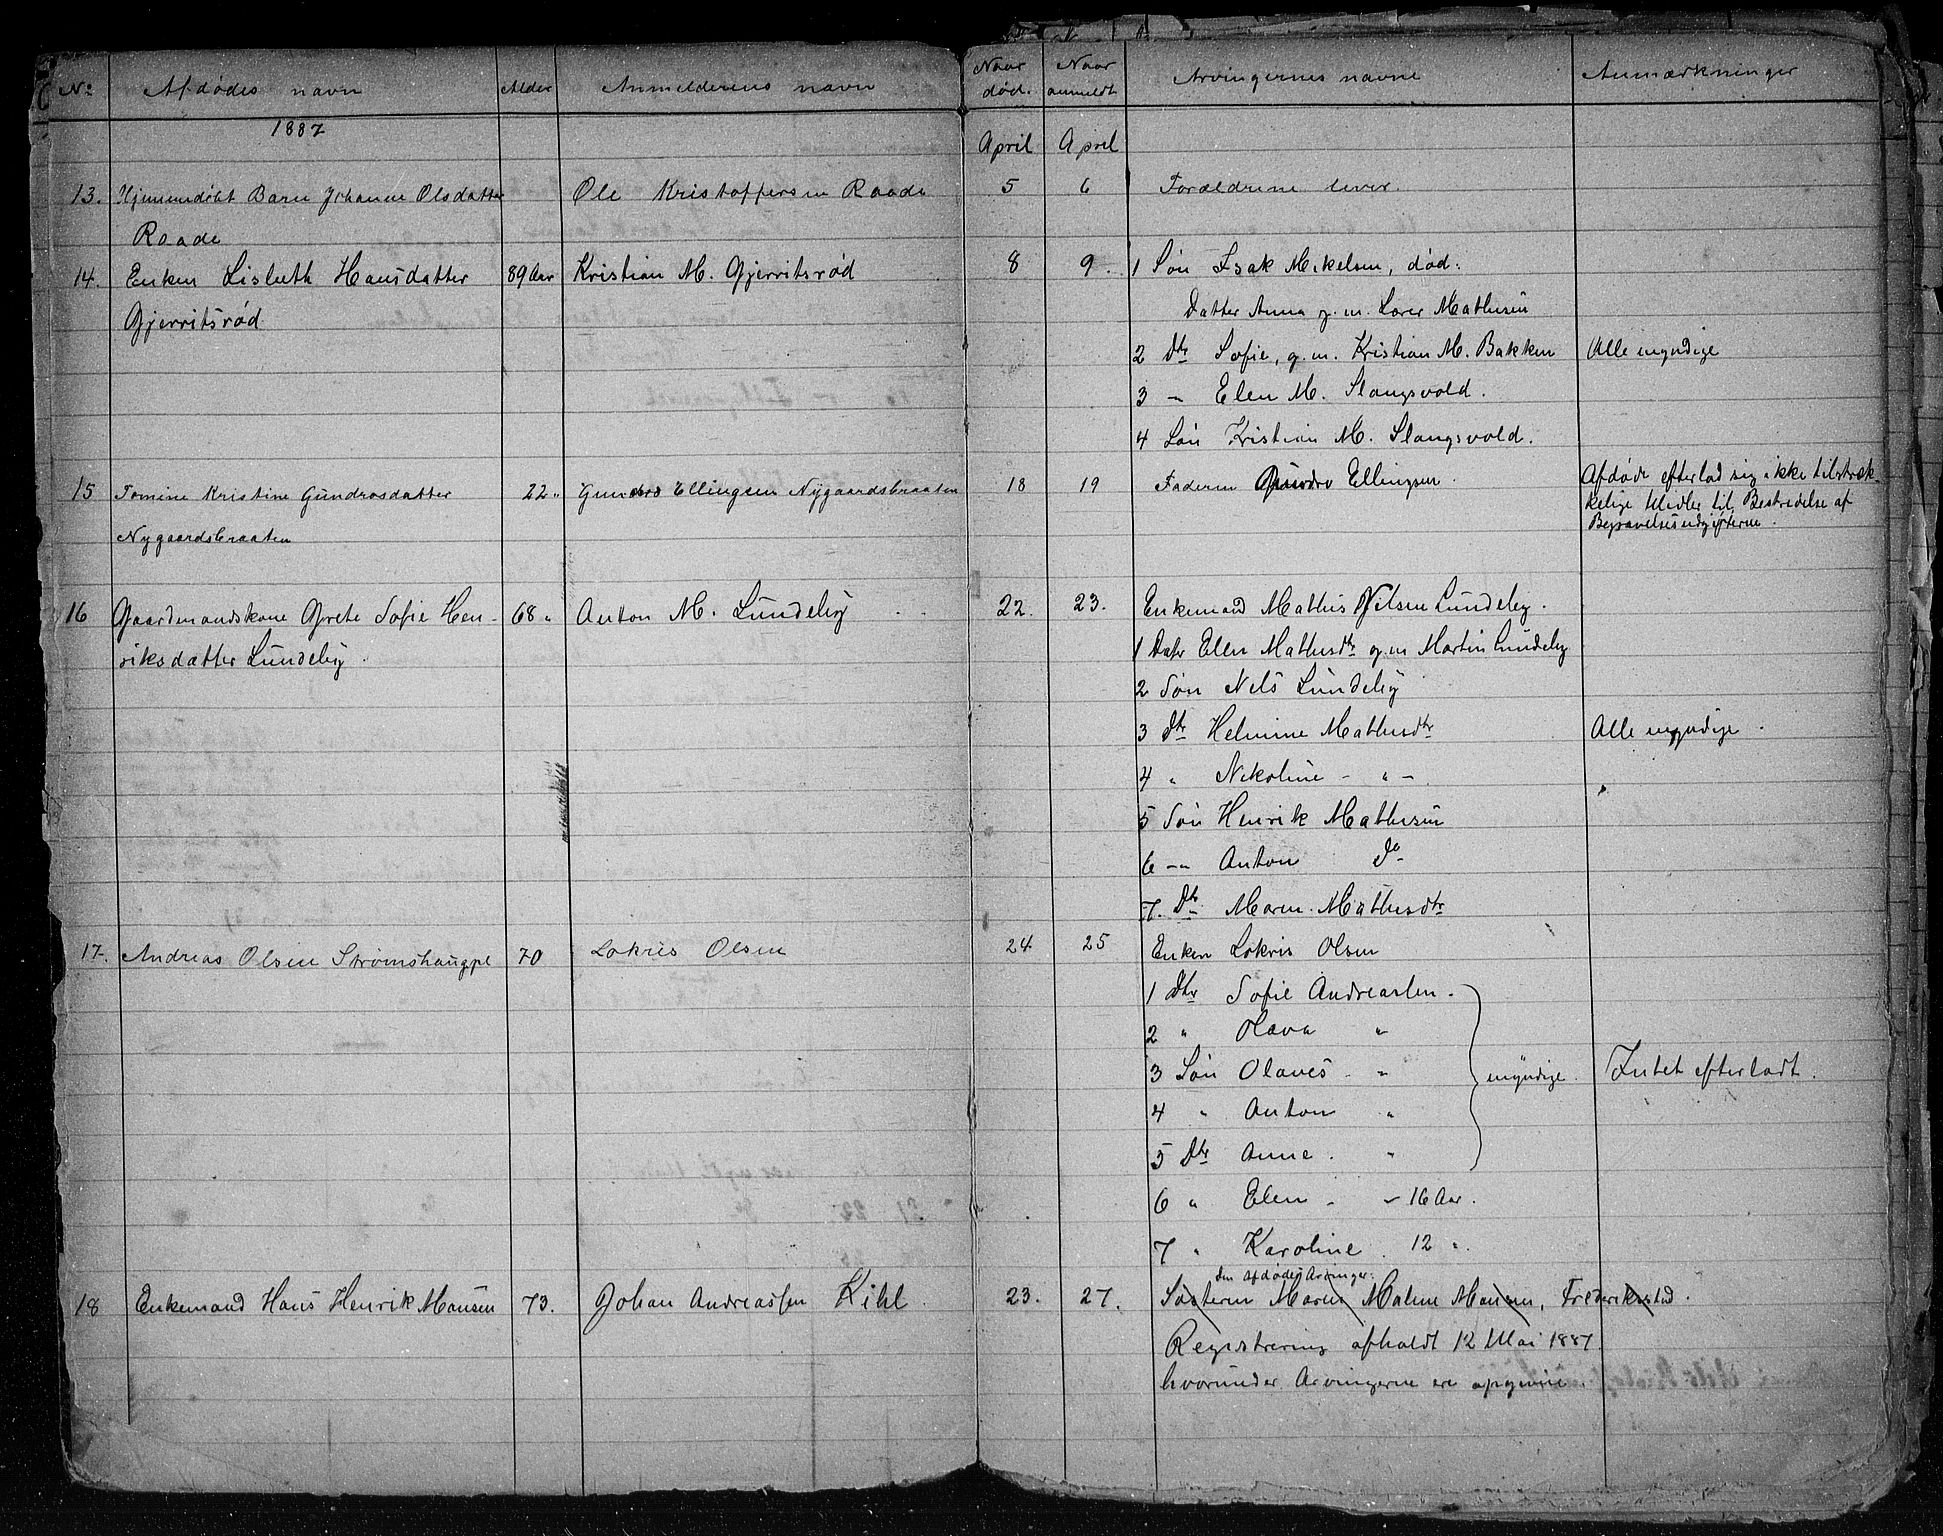 No Afdødes navn Alder Anmelderens navn Naar død. Naar anmeldt Arvingernes navne Anmærkninger
1887 April April
13. Hjemmedøbt Barn Johanne Olsdatter Ole Kristoffersen Raade 5 6 Forældrene lever.
Raade
14. Enken Lisbeth Hansdatter 89 Aar Kristian M. Gjerritsrød 8 9. 1 Søn Isak Mikelsen, død:
Gjerritsrød Datter Anna g. m. Lorer Mathisen
2 Dtr Sofie, g. m. Kristian M. Bakken Alle myndige
3 — Elen M. Slangsvold.
4 Søn Kristian M. Slangsvold.
15 Tomine Kristine Gundrosdatter 22 „ Gundro Ellingsen Nygaardsbraaten 18 19 Faderen Gundro Ellingsen. Afdøde efterlod sig ikke tilstræk-
kelige Midler til Bestridelse af
Nygaardsbraaten Begravelsesudgifterne.
16 Gaardmandskone Grete Sofie Hen- 68 „ Anton M. Lundeby 22. 23. Enkemand Mathis Nilsen Lundeby.
riksdatter Lundeby. 1 Datr Elen Mathisdtr g. m Martin Lundeby
2 Søn Nils Lundeby
3 Dtr Helmine Mathisdtr Alle myndige.
4 „ Nikoline - „ -
5 Søn Henrik Mathisen
6 —„ Anton Do
7. Dtr Maren Mathisdtr
17. Andreas Olsen Strømshaugpl 70 Lokris Olsen 24 25 Enken Lokris Olsen
1 Dtr Sofie Andreassen.
2 „ Olava „
3 Søn Olaves - „ myndige. Intet efterladt.
4 „ Anton „
5 Dtr Anne. „
6 „ Elen - „ 16 Aar.
7 „ Karoline. 12 „.
den Afdødes Arvinger.
18 Enkemand Hans Henrik Monsen 73. Johan Andreassen Kihl 23. 27. Søsteren Maren Malene Monsen, Frederikstad.
Registrering afholdt 12 Mai 1887.
hvorunder Arvingerne ere opgivne.